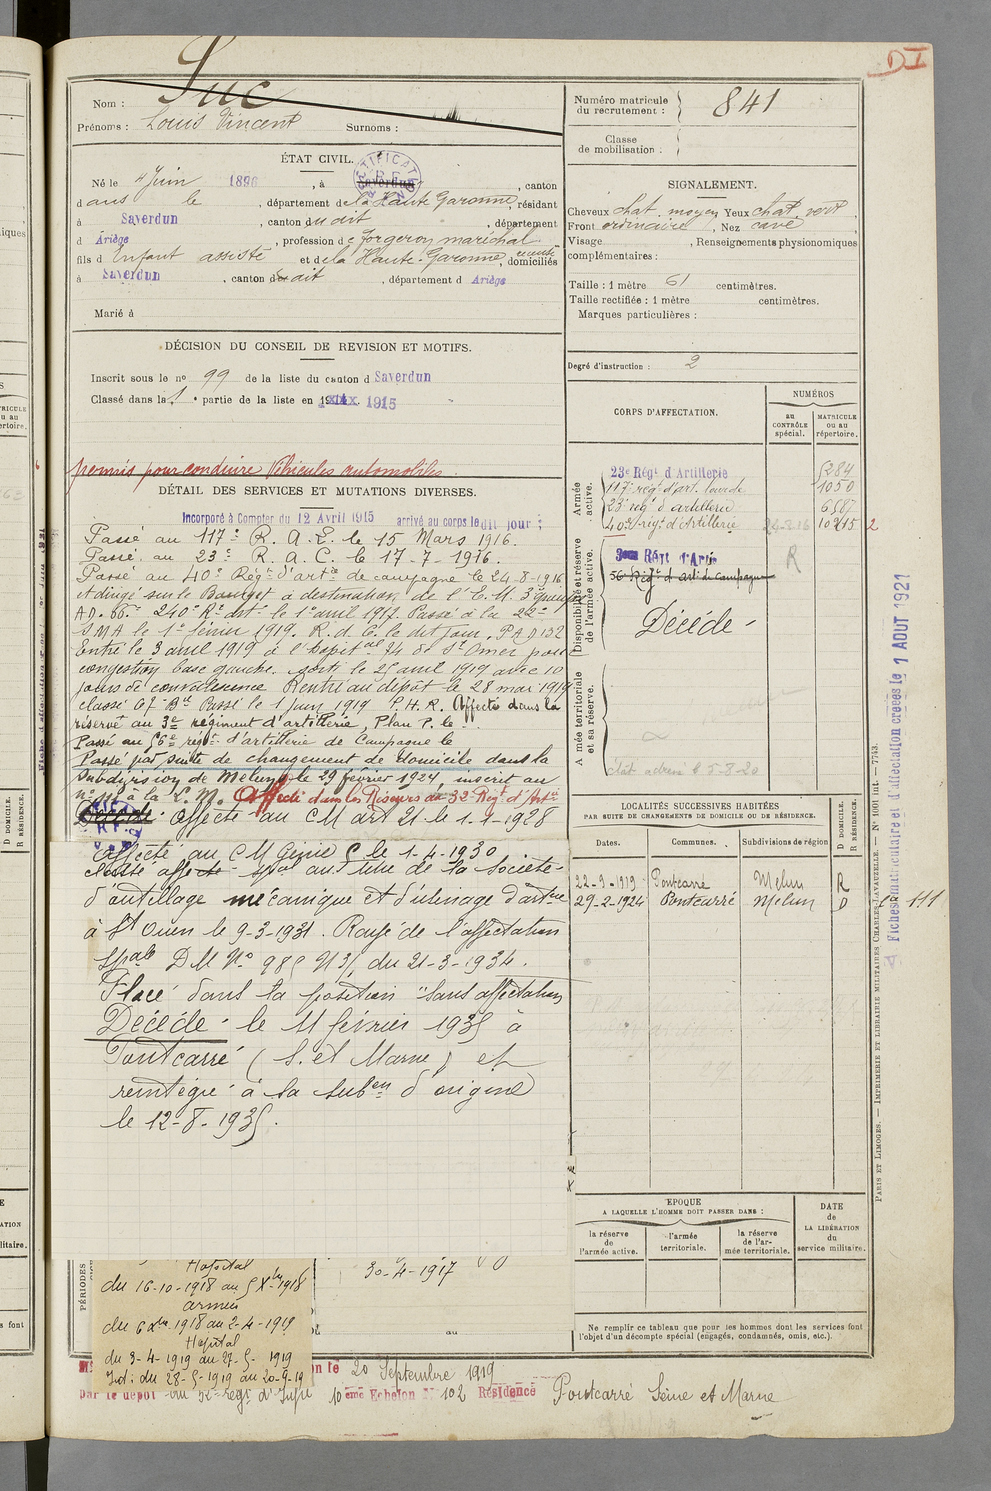 D I
Nom : Suc
Prénoms : Louis Vincent Surnoms :
Numéro matricule du recrutement : 841
Classe de mobilisation :
ÉTAT CIVIL.
Né le 4 Juin 1896, à Saverdun, canton
dans le, département de la Haute Garonne, résidant
à Saverdun, canton du dit, département
d Ariège, profession de forgeron maréchal
fils d Enfant assisté et de la Haute-Garonne, domiciliés
à Saverdun, canton du dit, département d Ariège
Marié à
SIGNALEMENT.
Cheveux chat. moyen Yeux chat. vert
Front ordinaire, Nez cavé
Visage , Renseignements physionomiques
complémentaires :
Taille : 1 mètre 61 centimètres.
Taille rectifiée : 1 mètre centimètres.
Marques particulières :
Degré d'instruction : 2
DÉCISION DU CONSEIL DE REVISION ET MOTIFS.
Inscrit sous le no 99 de la liste du canton d Saverdun
Classé dans la 1e partie de la liste en 1915
permis pour conduire Véhicules automobiles
DÉTAIL DES SERVICES ET MUTATIONS DIVERSES.
Incorporé à Compter du 12 Avril 1915 arrivé au corps le dit jour :
Passé au 117e R. A. L. le 15 Mars 1916.
Passé au 23e R. A. C. le 17-7-1916.
Passé au 40e Régt d'artie de campagne le 24-8-1916
et dirigé sur le Bourget à destination de l'E. M. 3e groupe
A D. 66e 240e Rt art. le 1er avril 1917. Passé à la 22e
S M A le 1er février 1919. R. d. C. le dit jour. P A D 132
Entré le 3 avril 1919 à l'hôpital 34 de St Omer pour
congestion base gauche. sorti le 25 avril 1919 avec 10
jours de convalescence Rentré au dépôt le 28 mai 1919
classé le 1 juin 1919 P. H. R. Affecté dans la
réserve au 3e régiment d'artillerie, Plan P. le
Passé au 56e regt d'artillerie de Campagne le
Passé par suite de changement de domicile dans la
subdivision de Melun le 29 février 1924, inscrit au
no 111 à la L. M. Affecté dans les Réserves du 32e Régt d'Artie
Décédé affecté au C M art 21 le 1-1-1928
Affecté au C M Génie C le 1-4-1930
Classé affecté spal au titre de la Société
d'outillage mécanique et d'usinage d'artie
à St Ouen le 9-3-1931. Rayé de l'affectation
spale D M No 985 N 3/, du 21-3-1934.
Placé dans la position "sans affectation
Décédé le 11 février 1935 à
Pontcarré (S. et Marne) et
réintégré à la subon d'origine
le 12-8-1935.
CORPS D'AFFECTATION.
NUMÉROS
au CONTRÔLE spécial.
MATRICULE ou au répertoire.
Armée active.
23e Régt d'Artillerie 5284
117e régt d'art. lourde 1050
23e régt d'artillerie 6587
40e régt d'Artillerie 24-8-16 10215 2
Disponibilité et réserve de l'armée active.
3ème Régt d'Artie R
56e Régt d'artie de campagne
Décédé
Armée territoriale et sa réserve.
état adressé le 5-8-20
LOCALITÉS SUCCESSIVES HABITÉES
PAR SUITE DE CHANGEMENTS DE DOMICILE OU DE RÉSIDENCE.
Dates. Communes. Subdivisions de région D DOMICILE. R RÉSIDENCE.
22-9-1919 Pontcarré Melun R
29-2-1924 Pontcarré Melun D 111
ÉPOQUE
A LAQUELLE L'HOMME DOIT PASSER DANS :
la réserve de l'armée active.
l'armée territoriale.
la réserve de l'armée territoriale.
DATE de LA LIBÉRATION du service militaire.
Ne remplir ce tableau que pour les hommes dont les services font
l'objet d'un décompte spécial (engagés, condamnés, omis, etc.).
PÉRIODES
Hopital
du 16-10-1918 au 5 Xbre 1918
armées
du 6 Xbre 1918 au 2-4-1919
Hopital
du 3-4-1919 au 27-5-1919
Int: du 28-5-1919 au 20-9-19
30-4-1917
au
on le 20 Septembre 1919
par le dépôt du 52e Regt d'Infie 10ème Echelon No 102 Résidence Pontcarré Seine et Marne
Fiches matriculaire et d'affectation créées le 1 AOUT 1921
PARIS ET LIMOGES. — IMPRIMERIE ET LIBRAIRIE MILITAIRES CHARLES-LAVAUZELLE. — No 1001 int. — 7743.